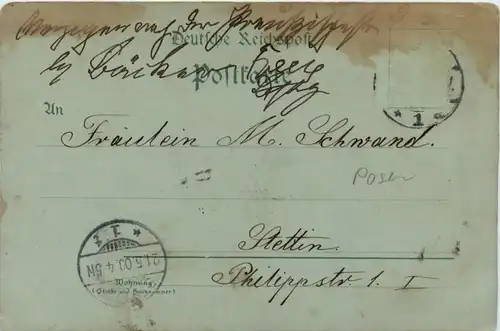 Verzogen nach der
Deutsche Reichspost
bei Bäcker
Postkarte
An
Fräulein M. Schwand.
Posen
Stettin
Philippstr. 1. I
* 1 *
21.5.00. 4-5N
Wohnung
(Straße und Hausnummer)